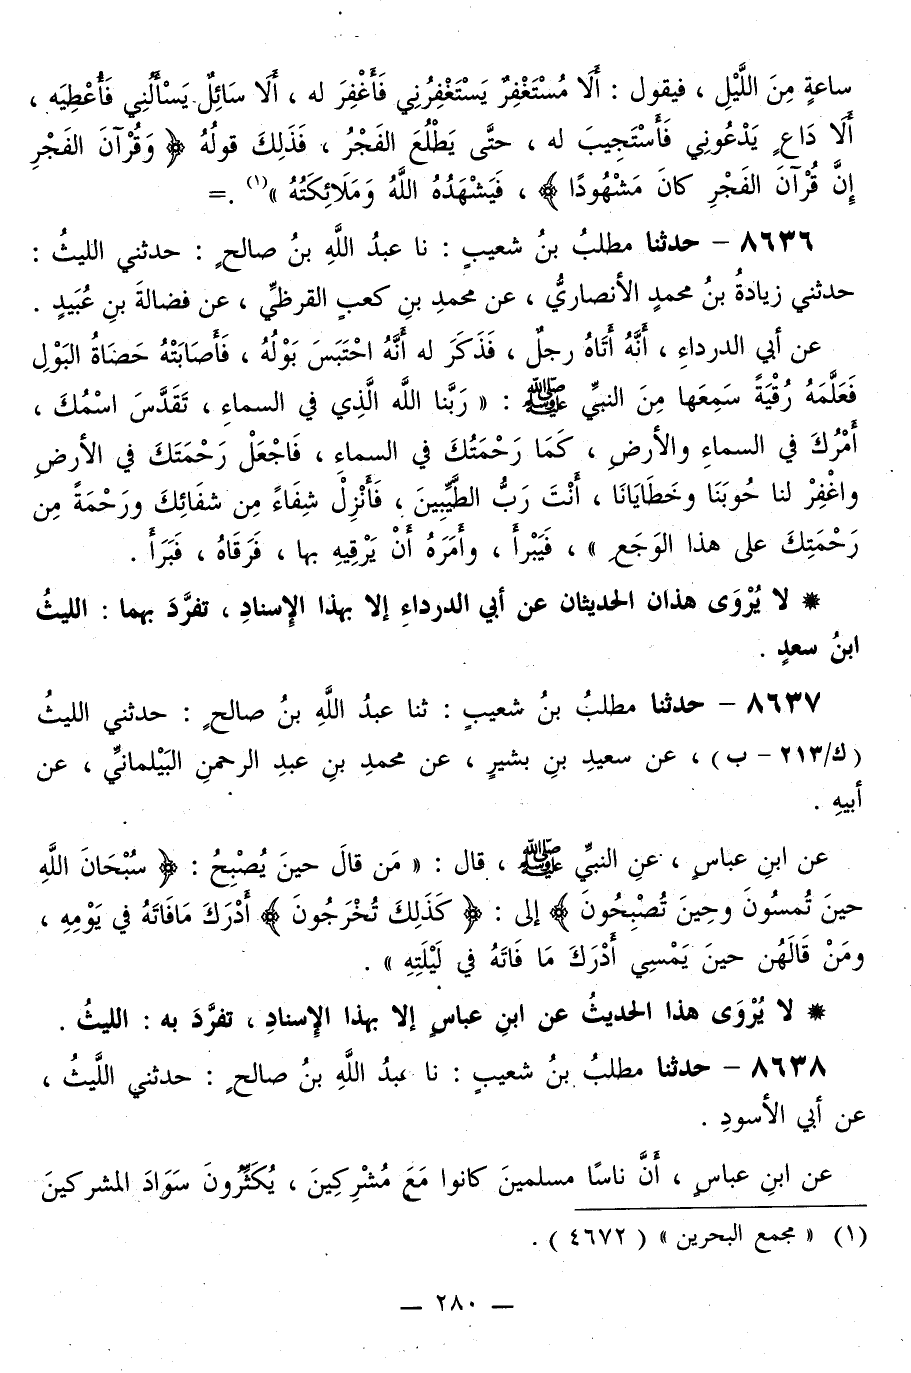 ساعةٍ مِنَ اللَّيْلِ ، فيقول : أَلَا مُسْتَغْفِرٌ يَسْتَغْفِرُنِي فَأَغْفِرَ له ، أَلَا سَائِلٌ يَسْأَلُنِي فَأُعْطِيَه ،
أَلَا دَاعٍ يَدْعُونِي فَأَسْتَجِيبَ له ، حتَّى يَطْلُعَ الفَجْرُ ، فَذَلِكَ قولُهُ ﴿ وَقُرْآنَ الفَجْرِ
إِنَّ قُرْآنَ الفَجْرِ كانَ مَشْهُودًا ﴾ ، فَيَشْهَدُهُ اللَّهُ وَمَلَائِكَتُهُ »(١) .=
٨٦٣٦ – حدثنا مطلبُ بنُ شعيبٍ : نا عبدُ اللَّهِ بنُ صالحٍ : حدثني الليثُ :
حدثني زيادةُ بنُ محمدٍ الأنصاريُّ ، عن محمدِ بنِ كعبٍ القرظيِّ ، عن فضالةَ بنِ عُبَيدٍ .
عن أبي الدرداءِ ، أَنَّهُ أَتَاهُ رجلٌ ، فَذَكَرَ له أَنَّهُ احْتَبَسَ بَوْلُهُ ، فَأَصَابَتْهُ حَصَاةُ البَوْلِ
فَعَلَّمَهُ رُقْيَةً سَمِعَها مِنَ النبيِّ ﷺ : « رَبَّنا الله الَّذِي في السماءِ ، تَقَدَّسَ اسْمُكَ ،
أَمْرُكَ في السماءِ والأرضِ ، كَمَا رَحْمَتُكَ في السماءِ ، فَاجْعَلْ رَحْمَتَكَ في الأرضِ
واغْفِرْ لنا حُوبَنَا وخَطَايَانَا ، أَنْتَ رَبُّ الطَّيِّبِينَ ، فَأَنْزِلْ شِفَاءً مِن شفَائِكَ ورَحْمَةً مِن
رَحْمَتِكَ على هذا الوَجَعِ » ، فَيَبْرأَ ، وأَمَرَهُ أَنْ يَرْقِيهِ بها ، فَرَقَاهُ ، فَبَرَأَ .
* لا يُرْوَى هذان الحديثان عن أبي الدرداءِ إلا بهذا الإِسنادِ ، تفرَّدَ بهما : الليثُ
ابنُ سعدٍ .
٨٦٣٧ – حدثنا مطلبُ بنُ شعيبٍ : ثنا عبدُ اللَّهِ بنُ صالحٍ : حدثني الليثُ
(ك/٢١٣ - ب) ، عن سعيدِ بنِ بشيرٍ ، عن محمدِ بنِ عبدِ الرحمنِ البَيْلمانيِّ ، عن
أبيهِ .
عن ابنِ عباسٍ ، عنِ النبيِّ ﷺ ، قال : « مَن قالَ حينَ يُصْبِحُ : ﴿ سُبْحَانَ اللَّهِ
حينَ تُمسُونَ وحِينَ تُصْبِحُونَ ﴾ إلى : ﴿ كَذَلِكَ تُخْرَجُونَ ﴾ أَدْرَكَ مَافَاتَهُ في يَوْمِهِ ،
ومَنْ قَالَهُن حينَ يَمْسِي أَدْرَكَ مَا فَاتَهُ في لَيْلَتِهِ » .
* لا يُرْوَى هذا الحديثُ عن ابنِ عباسٍ إلا بهذا الإِسنادِ ، تفرَّدَ به : الليثُ .
٨٦٣٨ – حدثنا مطلبُ بنُ شعيبٍ : نا عبدُ اللَّهِ بنُ صالحٍ : حدثني اللَّيثُ ،
عن أبي الأسودِ .
عن ابنِ عباسٍ ، أَنَّ ناسًا مسلمينَ كانوا مَعَ مُشْرِكِينَ ، يُكَثِّرُونَ سَوَادَ المشركينَ
(١) « مجمع البحرين » ( ٤٦٧٢ ) .
— ٢٨٠ —